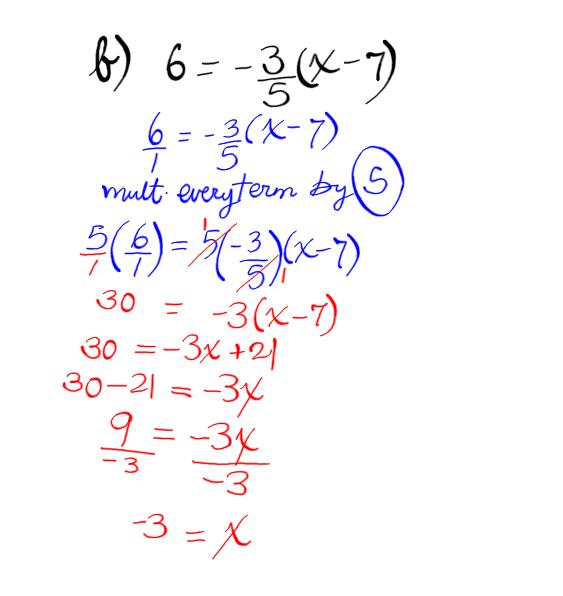 b) 6 = -3/5(x-7)
6/1 = -3/5(x-7)
mult. every term by 5
5/1(6/1) = 5(-3/5)(x-7)
1 1
30 = -3(x-7)
30 = -3x+21
30-21 = -3x
9/-3 = -3x/-3
-3 = x